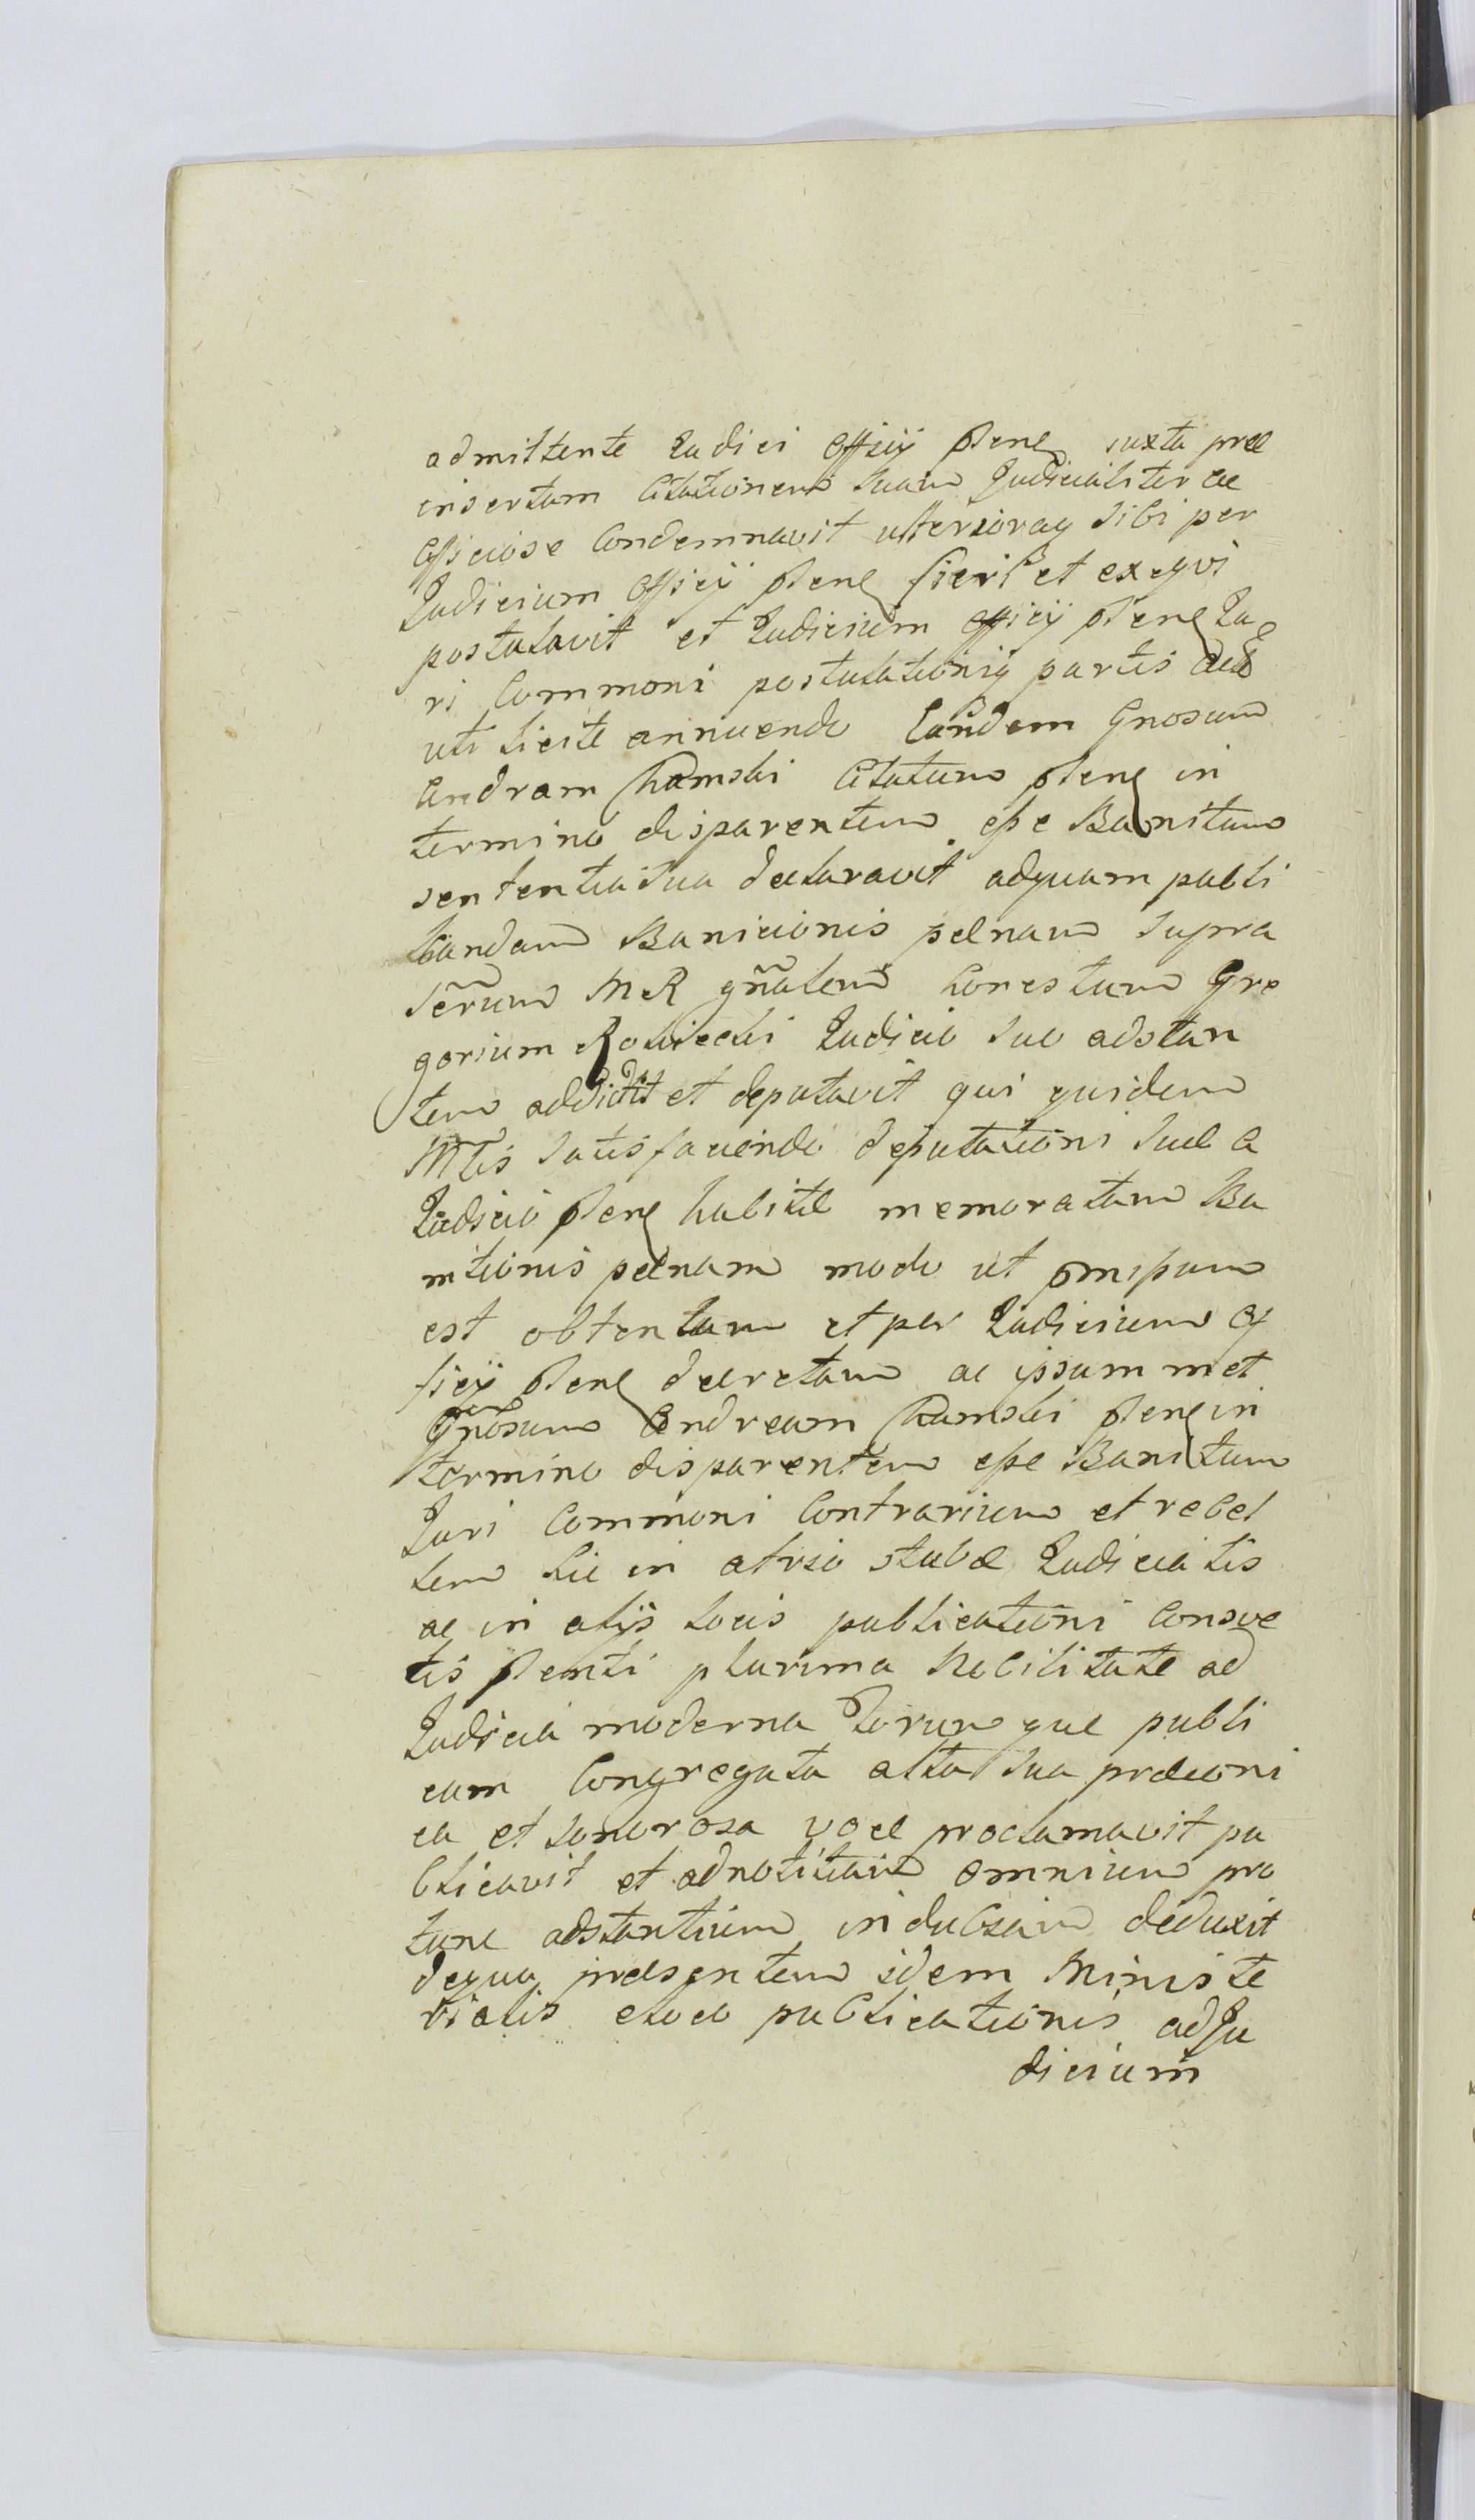 admittente Iudici Officij pñens iuxta præ
insertam Citationem suam Iudicialiter ac
officiose Condemnavit ulterioraq sibi per
Iudicium Officij pñens fieri et exeqvi
postulavit et Iudicium officij pñens Iu
ri Commoni postulationiq partis Act
uti licitæ annuendo Eandem Gnosum
Andream Citatum pñens in
termino disparentem esse Banitum
sententia sua declaravit adquam publi
candam Banicionis pænam supra
scrum M R gñalem honestum Gre
gorium Judicio suo adstan
tem addidit et deputavit qui quidem
Mtis satisfaciendo deputationi suæ a
Iudicio pñens habitæ memoratam Ba
nitionis pænam modo ut pmisum
est obtentam et per Iudicium Of
ficij pñens decretam ac ipsum met
Gnosum Andream pñens in
termino disparentem esse Banitum
Iuri Commoni Contrarium et rebel
lem hic in atrio stubæ Iudicialis
ac in alijs locis publicationi Consve
tis pñenti plurima Nobilitate ad
Iudicia moderna Forumque publi
cum Congregata alta sua præconi
ca et sonorosa voce proclamavit pu
blicavit et adnotitiam omnium pro
tunc adstantium indubiam deduxit
dequa præsentem idem Ministe
rialis eloco publicationis adJu
dicium